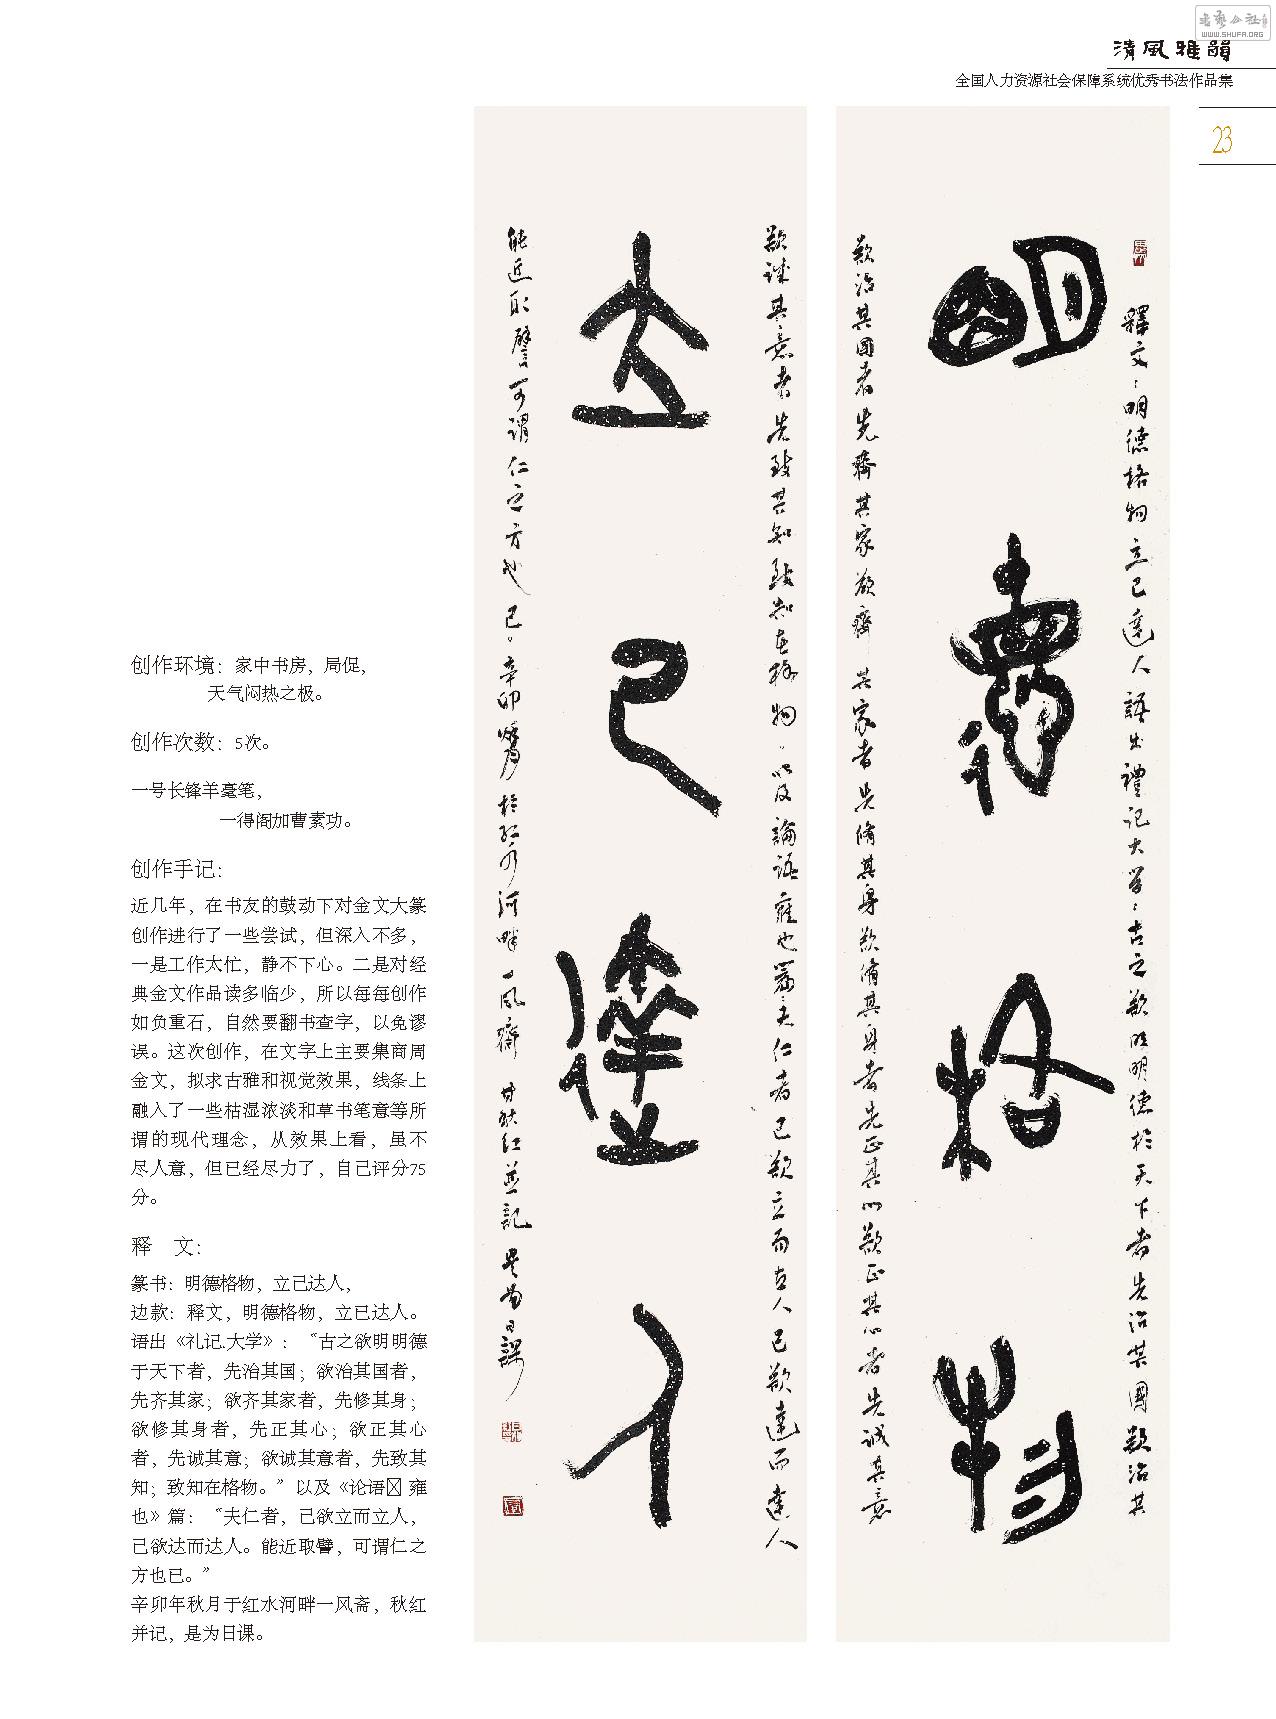 书艺公社
WWW.SHUFA.ORG
清風雅韻
全国人力资源社会保障系统优秀书法作品集
23
明德格物
立己達人
釋文：明德格物立己達人語出禮記大学：古之欲明明德於天下者先治其國欲治其
欲治其國者先齊其家欲齊其家者先脩其身欲脩其身者先正其心欲正其心者先诚其意
欲诚其意者先致其知致知在格物。以及論语雍也篇：夫仁者己欲立而立人己欲達而達人
能近取譬可谓仁之方也已。辛卯
於红水河畔一风齋
秋红並記是為日課
创作环境：家中书房，局促，
天气闷热之极。
创作次数：5次。
一号长锋羊毫笔，
一得阁加曹素功。
创作手记：
近几年，在书友的鼓动下对金文大篆
创作进行了一些尝试，但深入不多，
一是工作太忙，静不下心。二是对经
典金文作品读多临少，所以每每创作
如负重石，自然要翻书查字，以免谬
误。这次创作，在文字上主要集商周
金文，拟求古雅和视觉效果，线条上
融入了一些枯湿浓淡和草书笔意等所
谓的现代理念，从效果上看，虽不
尽人意，但已经尽力了，自己评分75
分。
释　文：
篆书：明德格物，立己达人，
边款：释文，明德格物，立已达人。
语出《礼记.大学》：“古之欲明明德
于天下者，先治其国；欲治其国者，
先齐其家；欲齐其家者，先修其身；
欲修其身者，先正其心；欲正其心
者，先诚其意；欲诚其意者，先致其
知；致知在格物。”以及《论语 雍
也》篇：“夫仁者，己欲立而立人，
已欲达而达人。能近取譬，可谓仁之
方也已。”
辛卯年秋月于红水河畔一风斋，秋红
并记，是为日课。